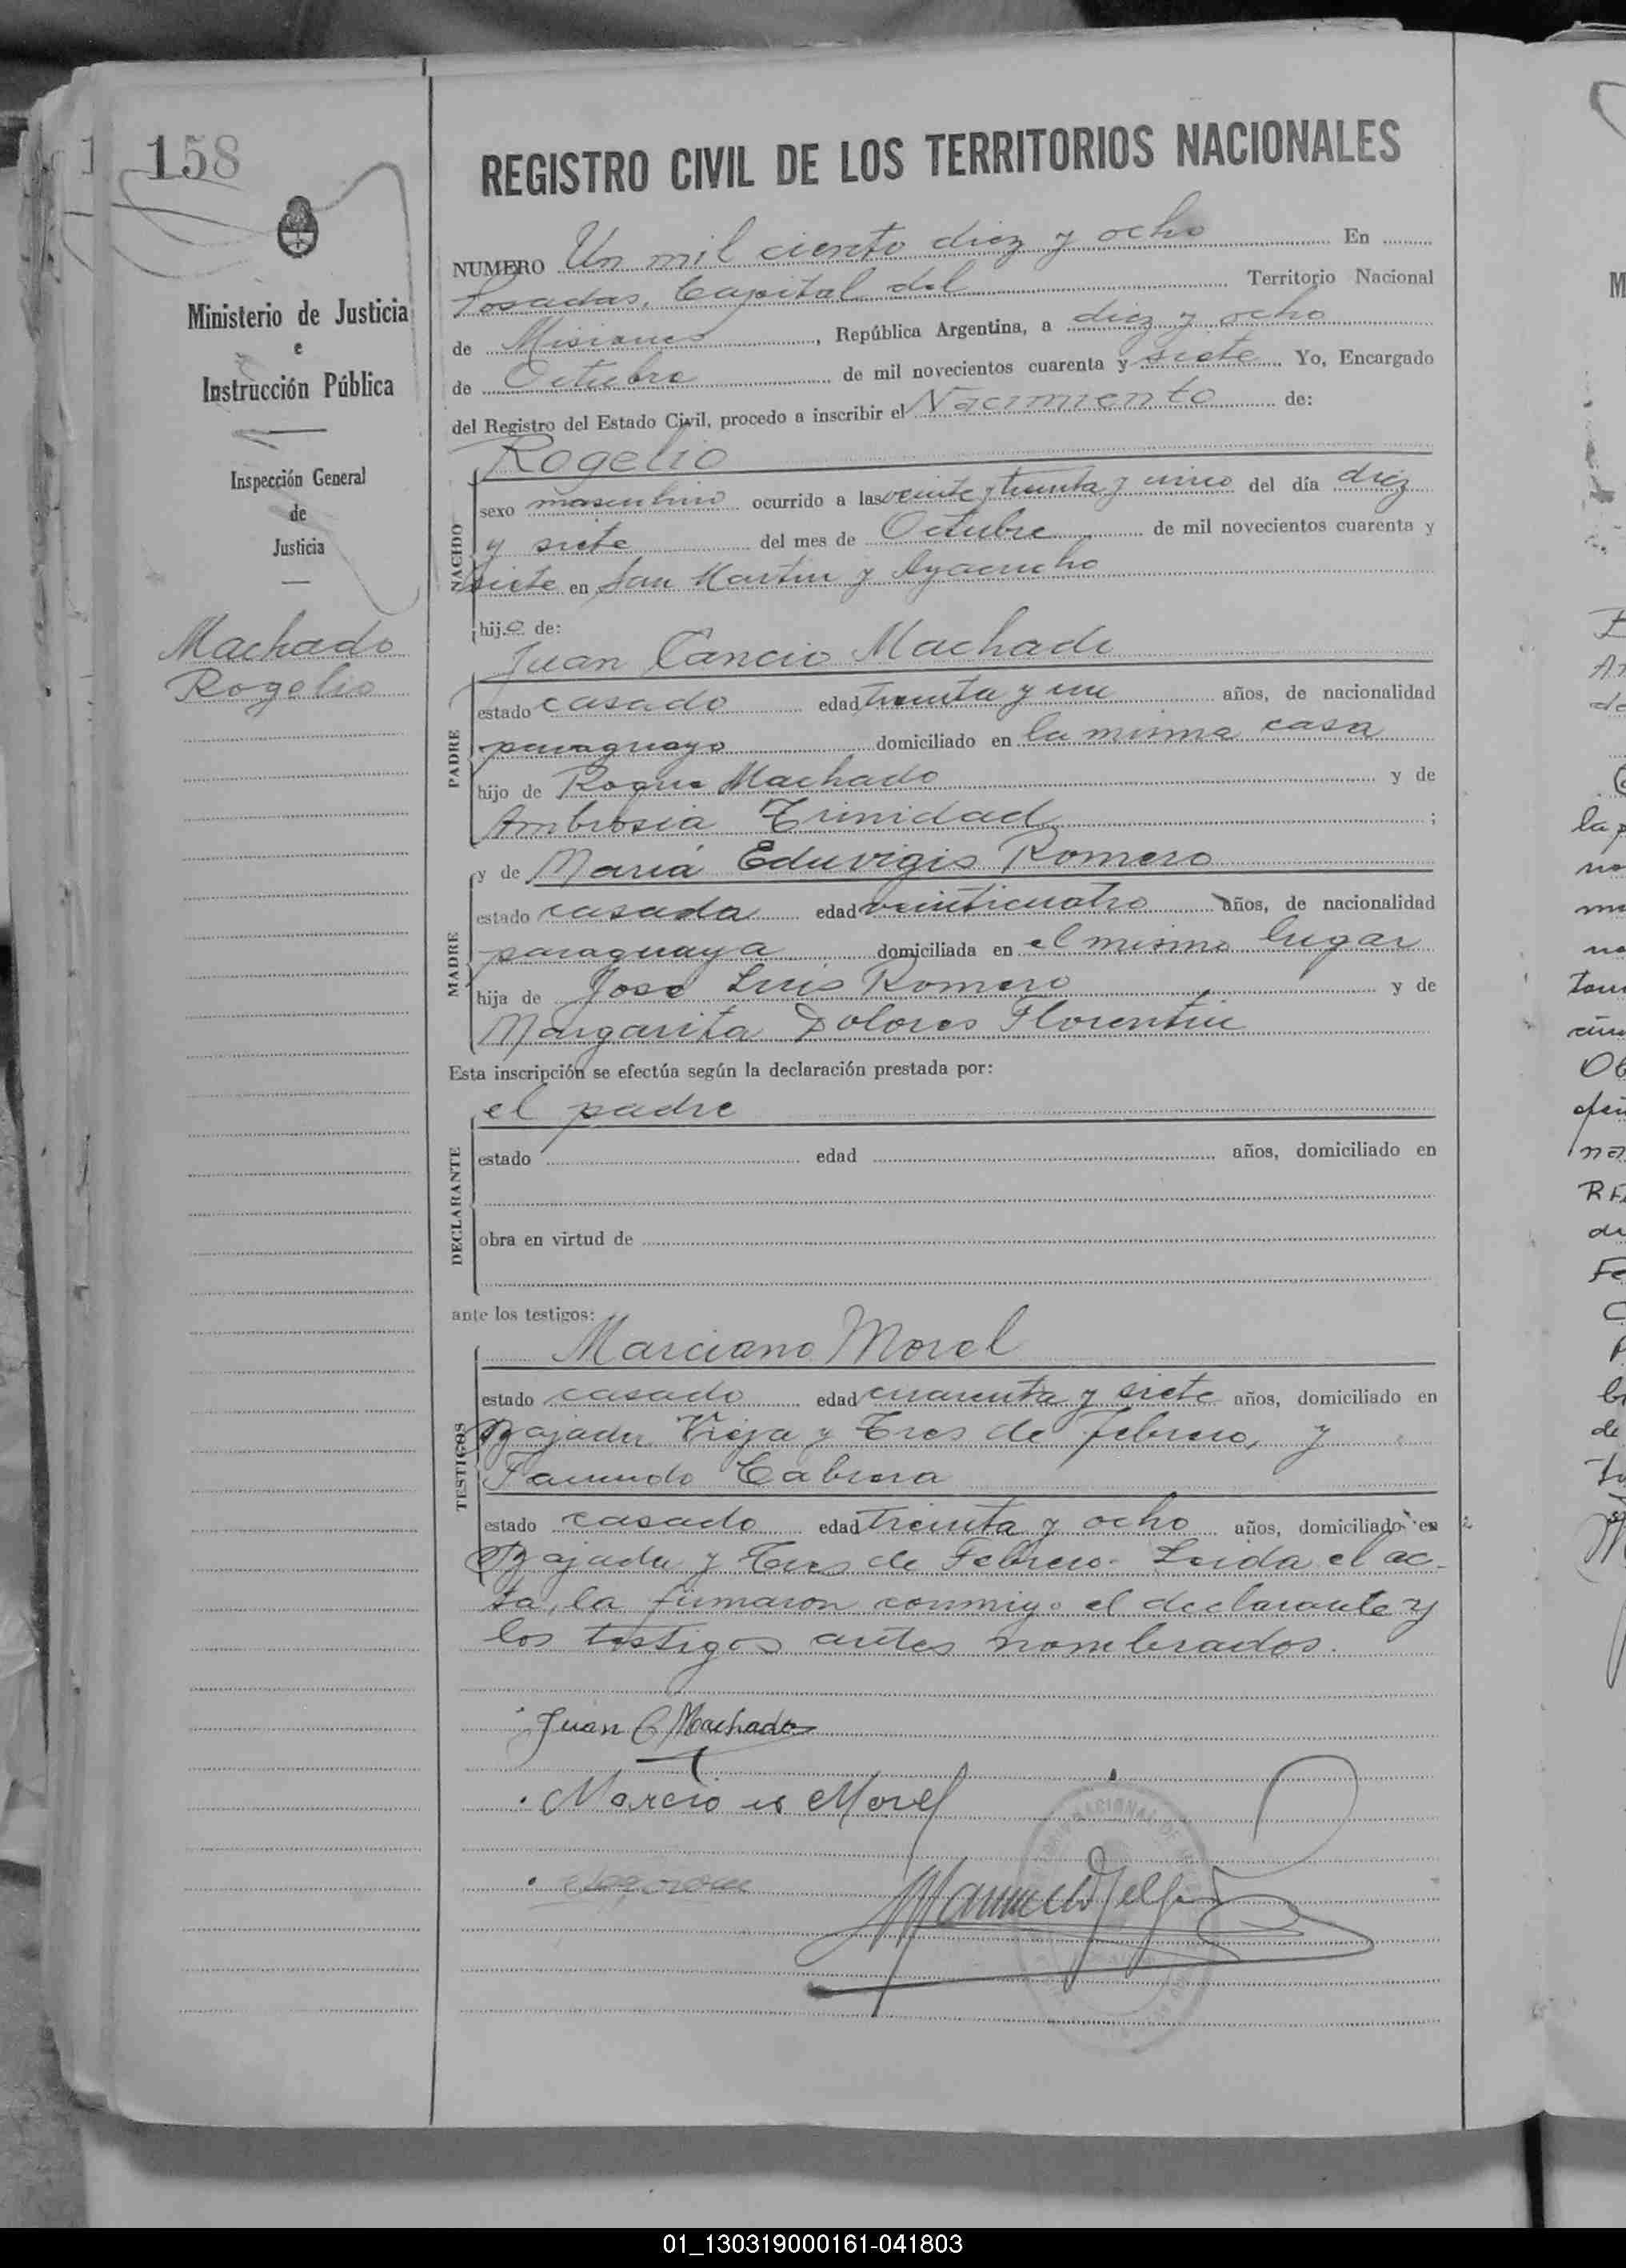 158
Ministerio de Justicia
e
Instrucción Pública
Inspección General
de
Justicia
Machado
Rogelio
REGISTRO CIVIL DE LOS TERRITORIOS NACIONALES
NUMERO Un mil ciento diez y ocho En
Posadas, Capital del Territorio Nacional
de Misiones, República Argentina, a diez y ocho
de Octubre de mil novecientos cuarenta y siete Yo, Encargado
del Registro del Estado Civil, procedo a inscribir el Nacimiento de:
Rogelio
NACIDO
sexo masculino ocurrido a las veinte y treinta y cinco del día diez
y siete del mes de Octubre de mil novecientos cuarenta y
siete en San Martin y Ayacucho
hijo de:
Juan Cancio Machado
PADRE
estado casado edad treinta y un años, de nacionalidad
paraguayo domiciliado en la misma casa
hijo de Roque Machado y de
Ambrosia Trinidad ;
y de Maria Eduvigis Romero
MADRE
estado casada edad veinticuatro años, de nacionalidad
paraguaya domiciliada en el mismo lugar
hija de Jose Luis Romero y de
Margarita Dolores Florentin
Esta inscripción se efectúa según la declaración prestada por:
el padre
DECLARANTE
estado edad años, domiciliado en
obra en virtud de
ante los testigos:
Marciano Morel
TESTIGOS
estado casado edad cuarenta y siete años, domiciliado en
Bajada Vieja y Tres de febrero, y
Facundo Cabrera
estado casado edad treinta y ocho años, domiciliado en
Bajada y Tres de Febrero - Leida el ac-
ta, la firmaron conmigo el declarante y
los testigos antes nombrados.
Juan C Machado
Morel
01_130319000161-041803